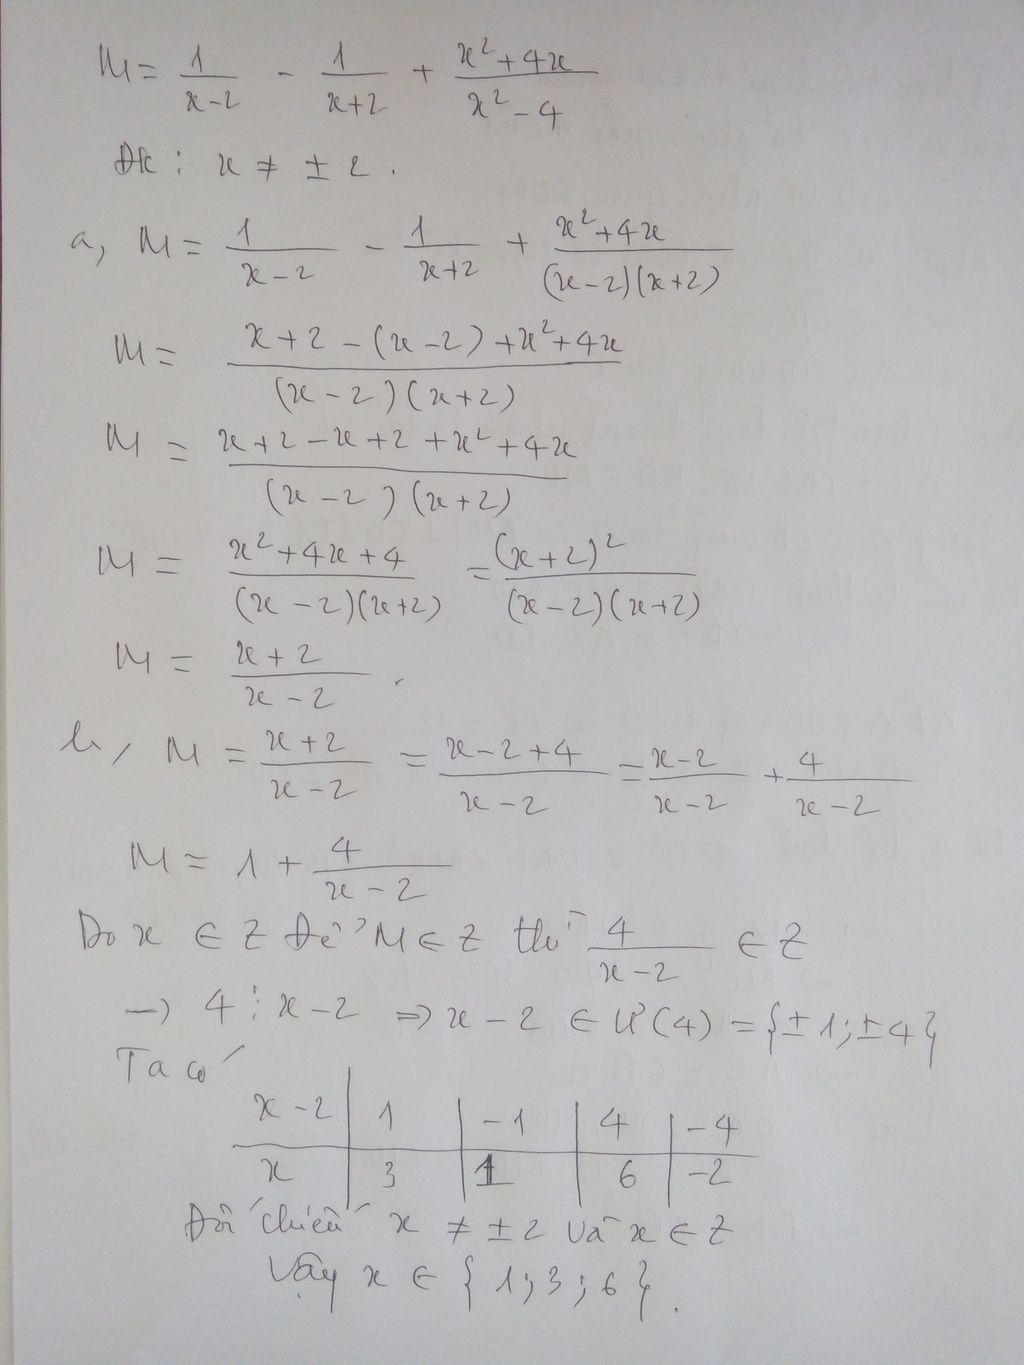 M = 1/(x-2) - 1/(x+2) + (x²+4x)/(x²-4)
Đk : x ≠ ± 2 .
a, M = 1/(x-2) - 1/(x+2) + (x²+4x)/((x-2)(x+2))
M = (x+2-(x-2)+x²+4x)/((x-2)(x+2))
M = (x+2-x+2+x²+4x)/((x-2)(x+2))
M = (x²+4x+4)/((x-2)(x+2)) = (x+2)²/((x-2)(x+2))
M = (x+2)/(x-2) .
b, M = (x+2)/(x-2) = (x-2+4)/(x-2) = (x-2)/(x-2) + 4/(x-2)
M = 1 + 4/(x-2)
Do x ∈ Z Để M ∈ Z thì 4/(x-2) ∈ Z
→ 4 ⋮ x-2 ⇒ x-2 ∈ Ư(4) = {±1;±4}
Ta có
x-2 | 1 | -1 | 4 | -4
x | 3 | 1 | 6 | -2
Đối chiếu x ≠ ±2 và x ∈ Z
Vậy x ∈ { 1 ; 3 ; 6 } .